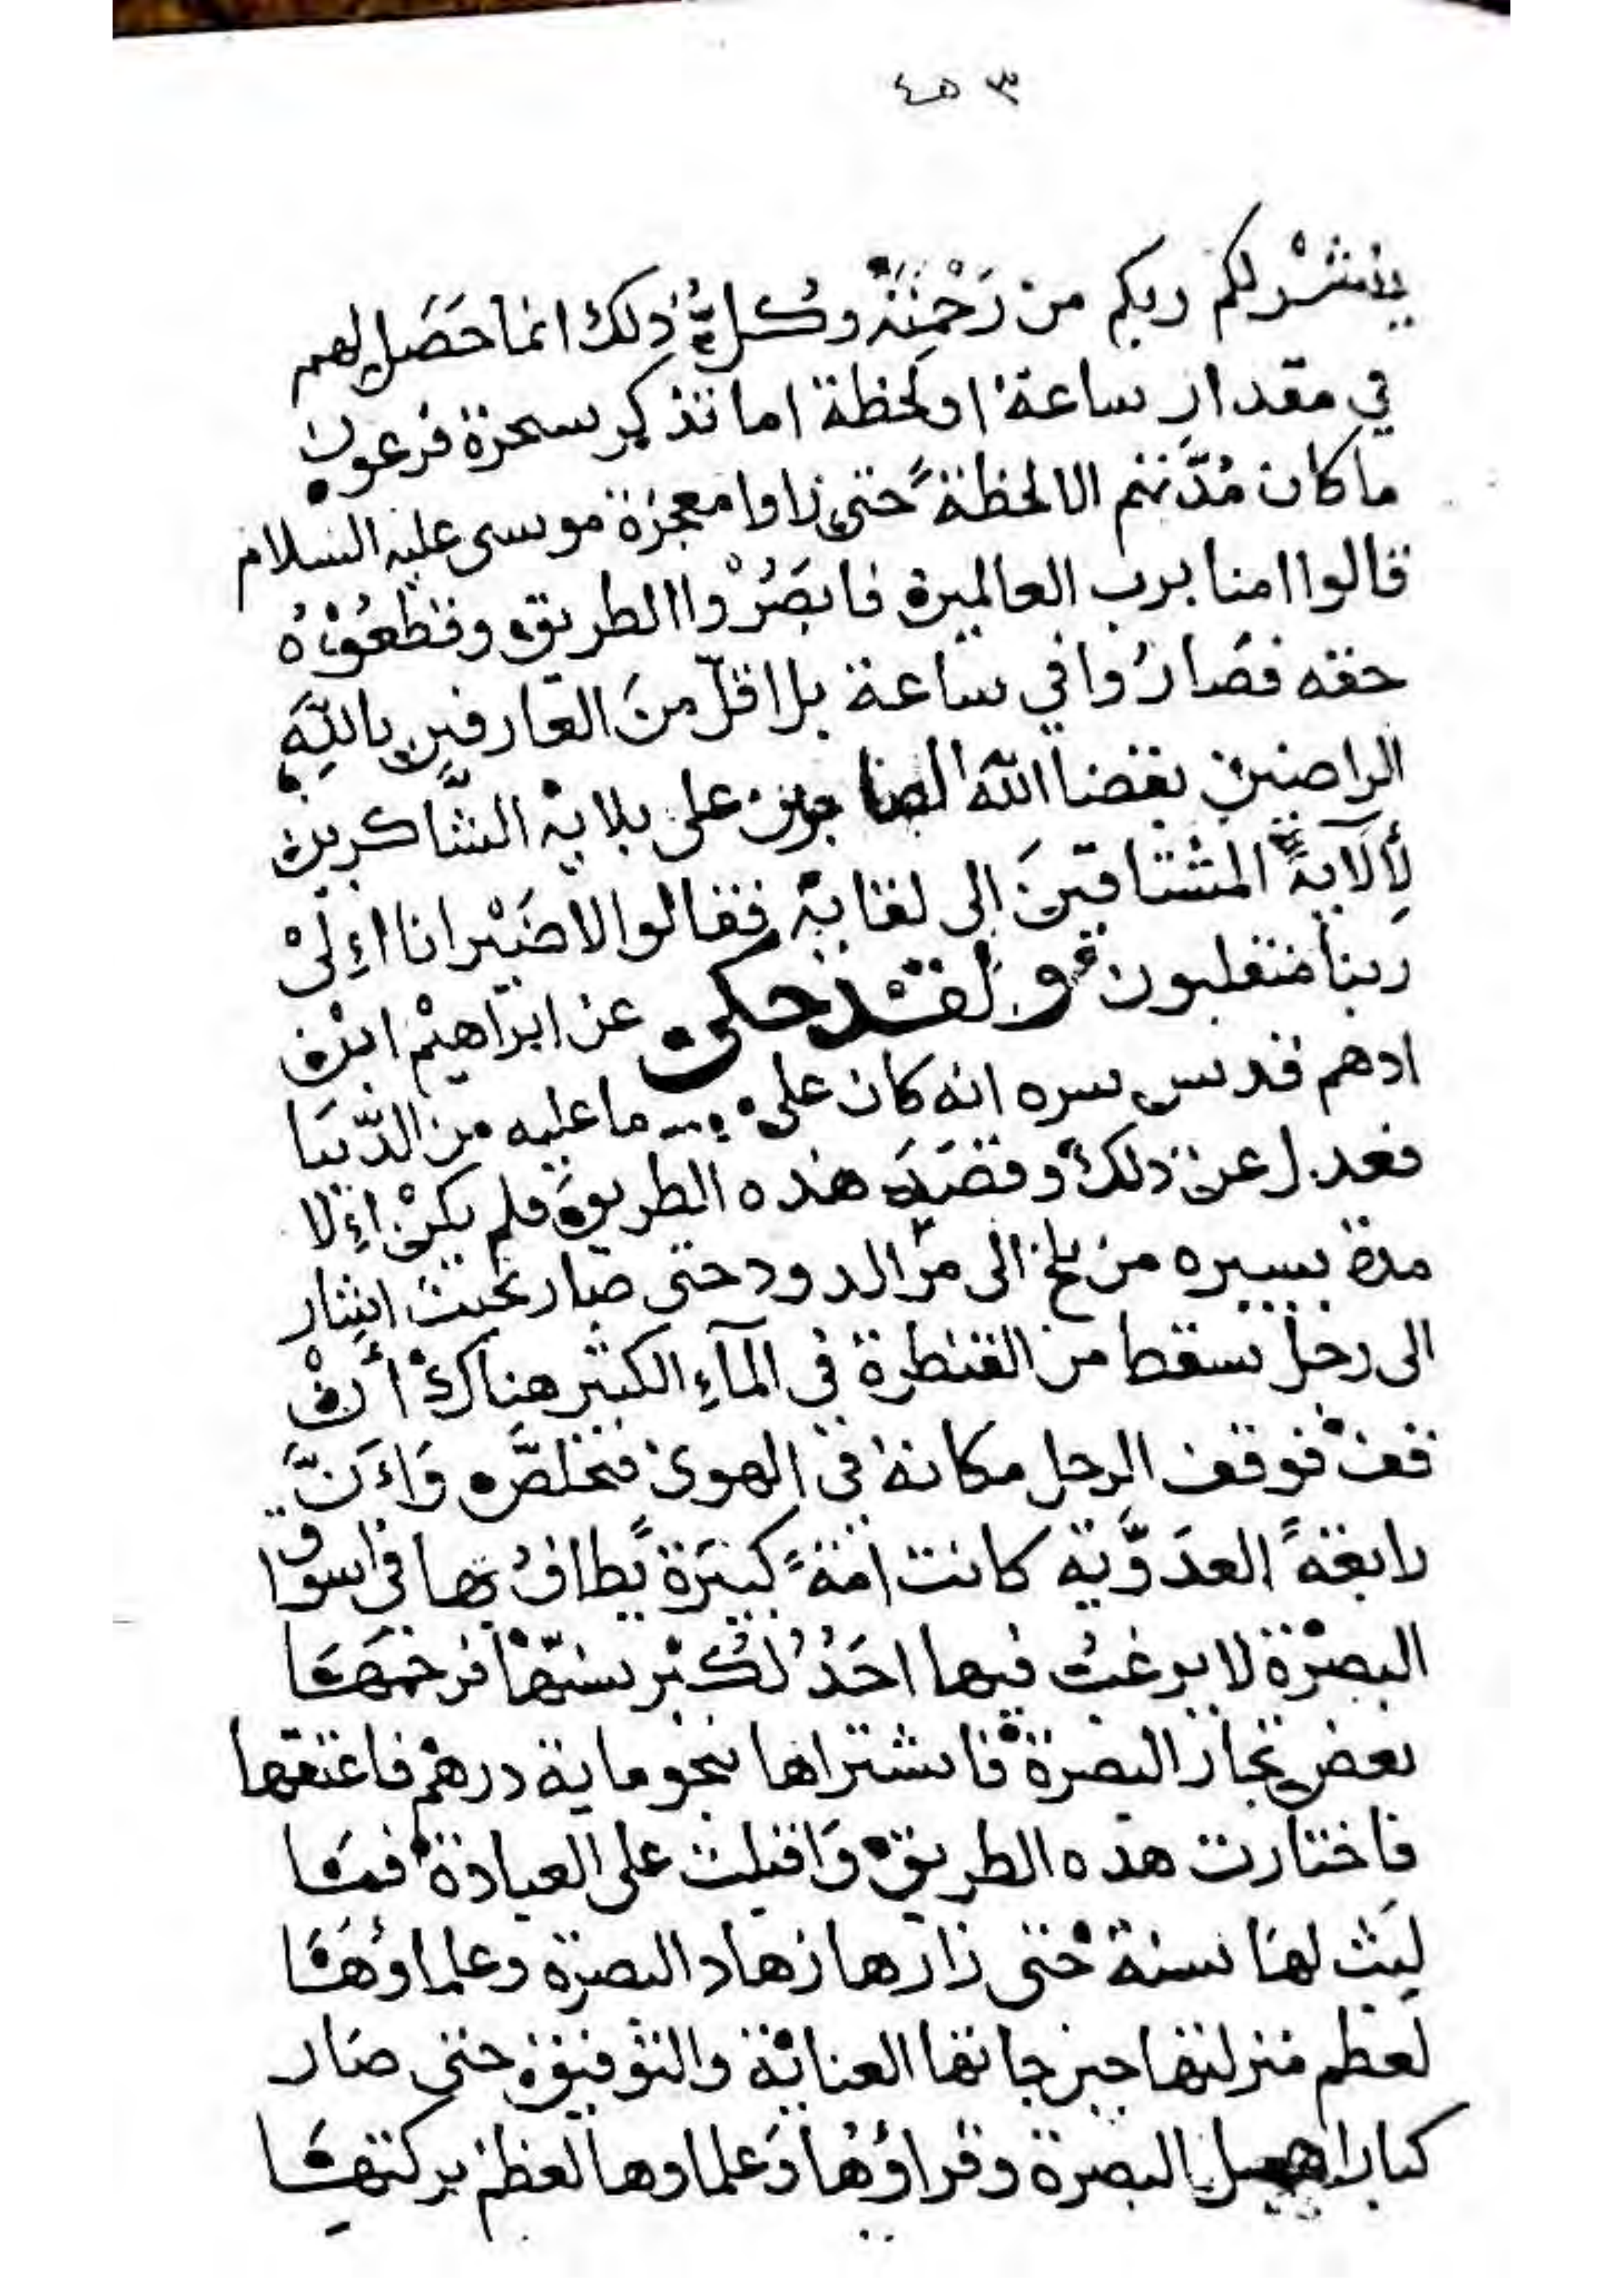 ٤٥٣
ينشر لكم ربكم من رحمته وكل ذلك انما حصل لهم
في مقدار ساعة او لحظة اما تذكر سحرة فرعون
ما كان مدتهم الا لحظة حتى راوا معجزة موسى عليه السلام
قالوا امنا برب العالمين فابصروا الطريق وقطعوه
حقه فصاروا في ساعة بل اقل من العارفين بالله
الراضين بقضا الله الصابرين على بلايه الشاكرين
لألآيه المشتاقين الى لقايه فقالوا لاضير انا إلى
ربنا منقلبون ولقد حكى عن ابراهيم ابن
ادهم قدس سره انه كان على ما عليه من الدنيا
فعدل عن ذلك وقصد هذه الطريق فلم يكن إلا
مدة يسيره من بلخ الى مر الدود حتى صار بحيث اشار
الى رجل سقط من القنطرة في المآء الكثير هناك أن
قف فوقف الرجل مكانه في الهوى فتخلص وان
رابعة العدوية كانت امة كبيرة يطاف بها في اسواق
البصرة لا يرغب فيها احد لكبر سنها فرحمها
بعض تجار البصرة فاشتراها بنحو ماية درهم فاعتقها
فاختارت هذه الطريق واقبلت على العبادة فما
لبث لها سنة حتى زارها زهاد البصرة وعلماوها
لعظم منزلتها حين جاتها العناية والتوفيق حتى صار
كبار اهل البصرة وقراؤها وعلماوها لعظم بركتها